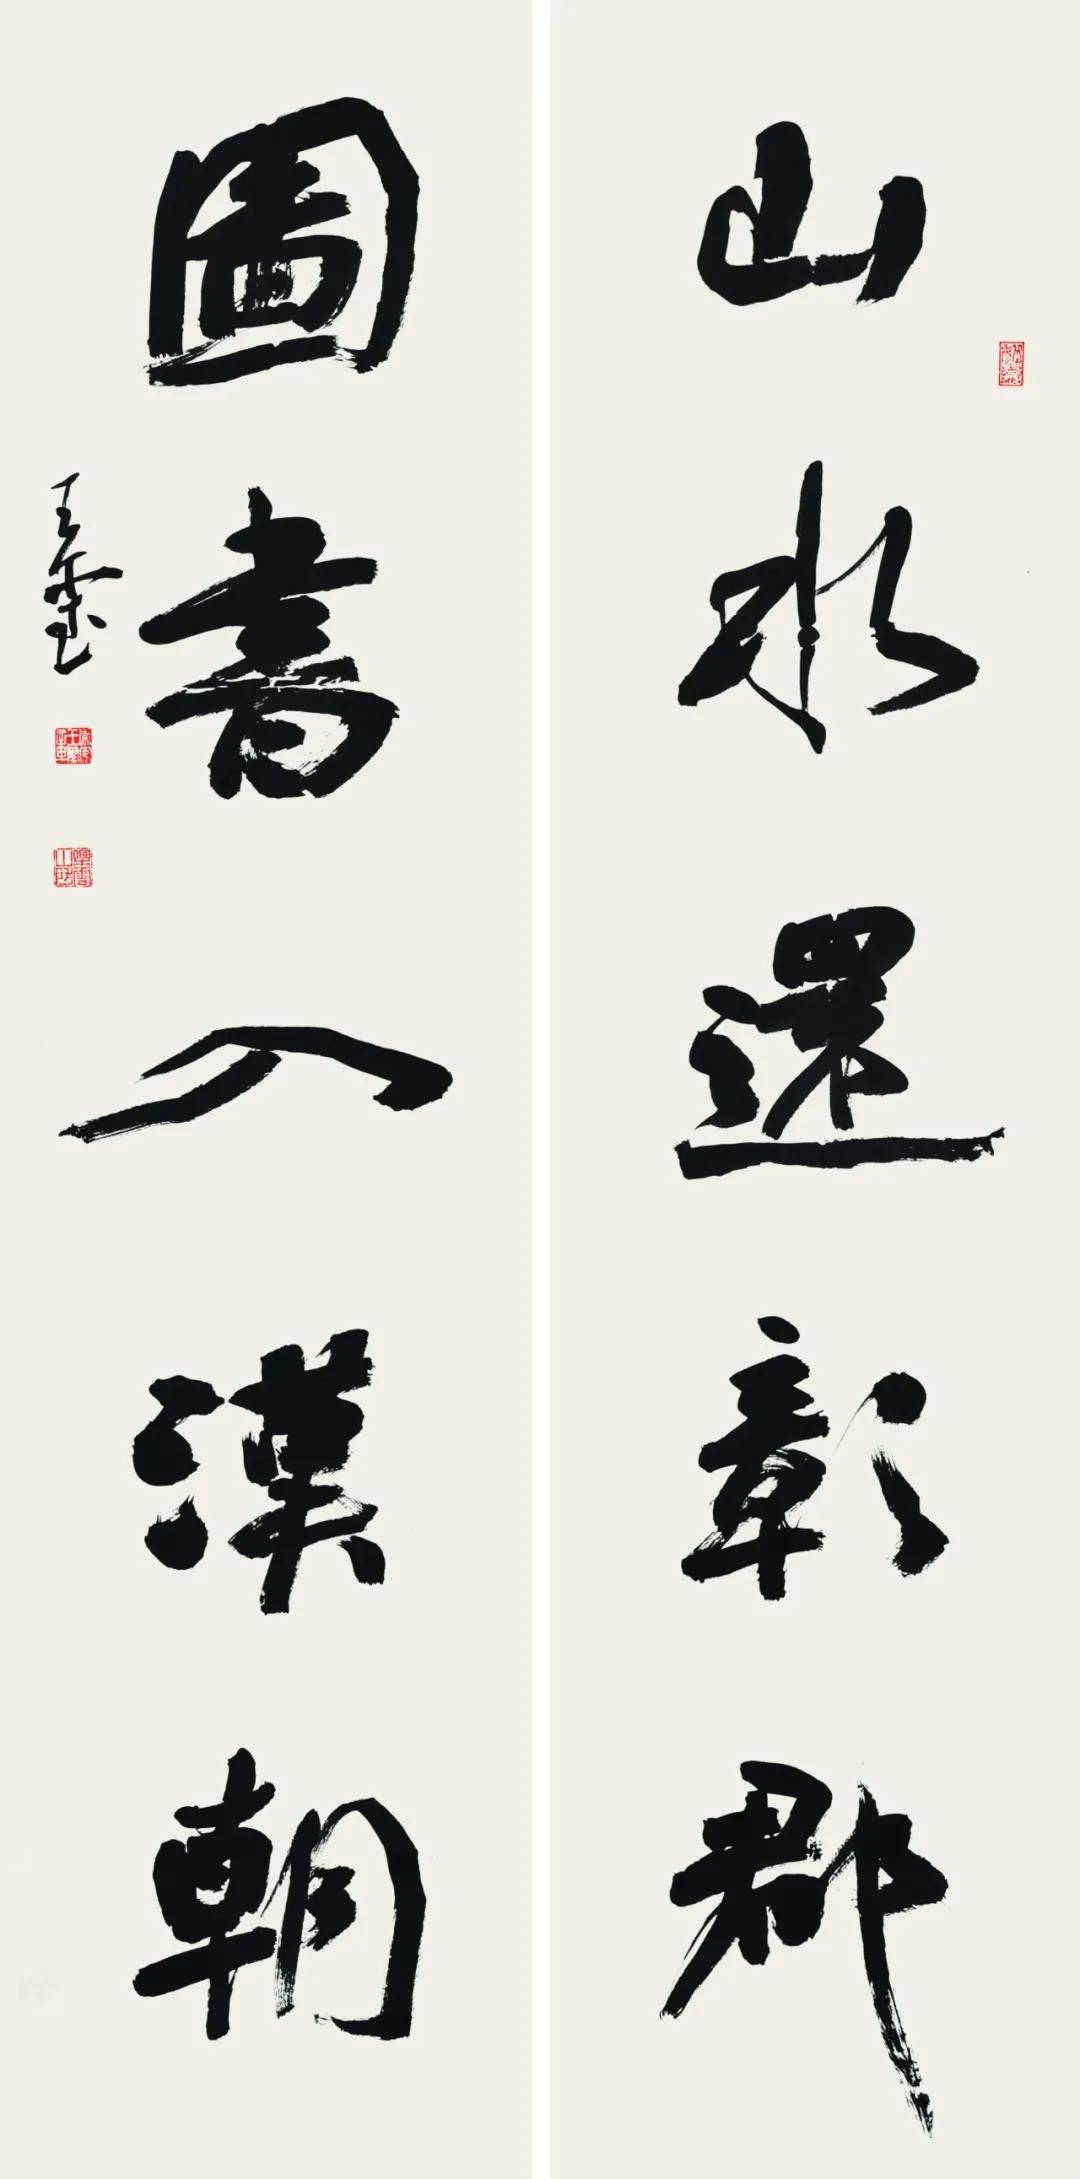 山水還彰郡
圖書入漢朝
王璽